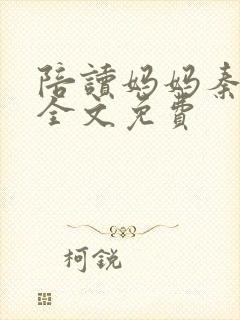 陪讀媽媽秦
全文免費
柯銳